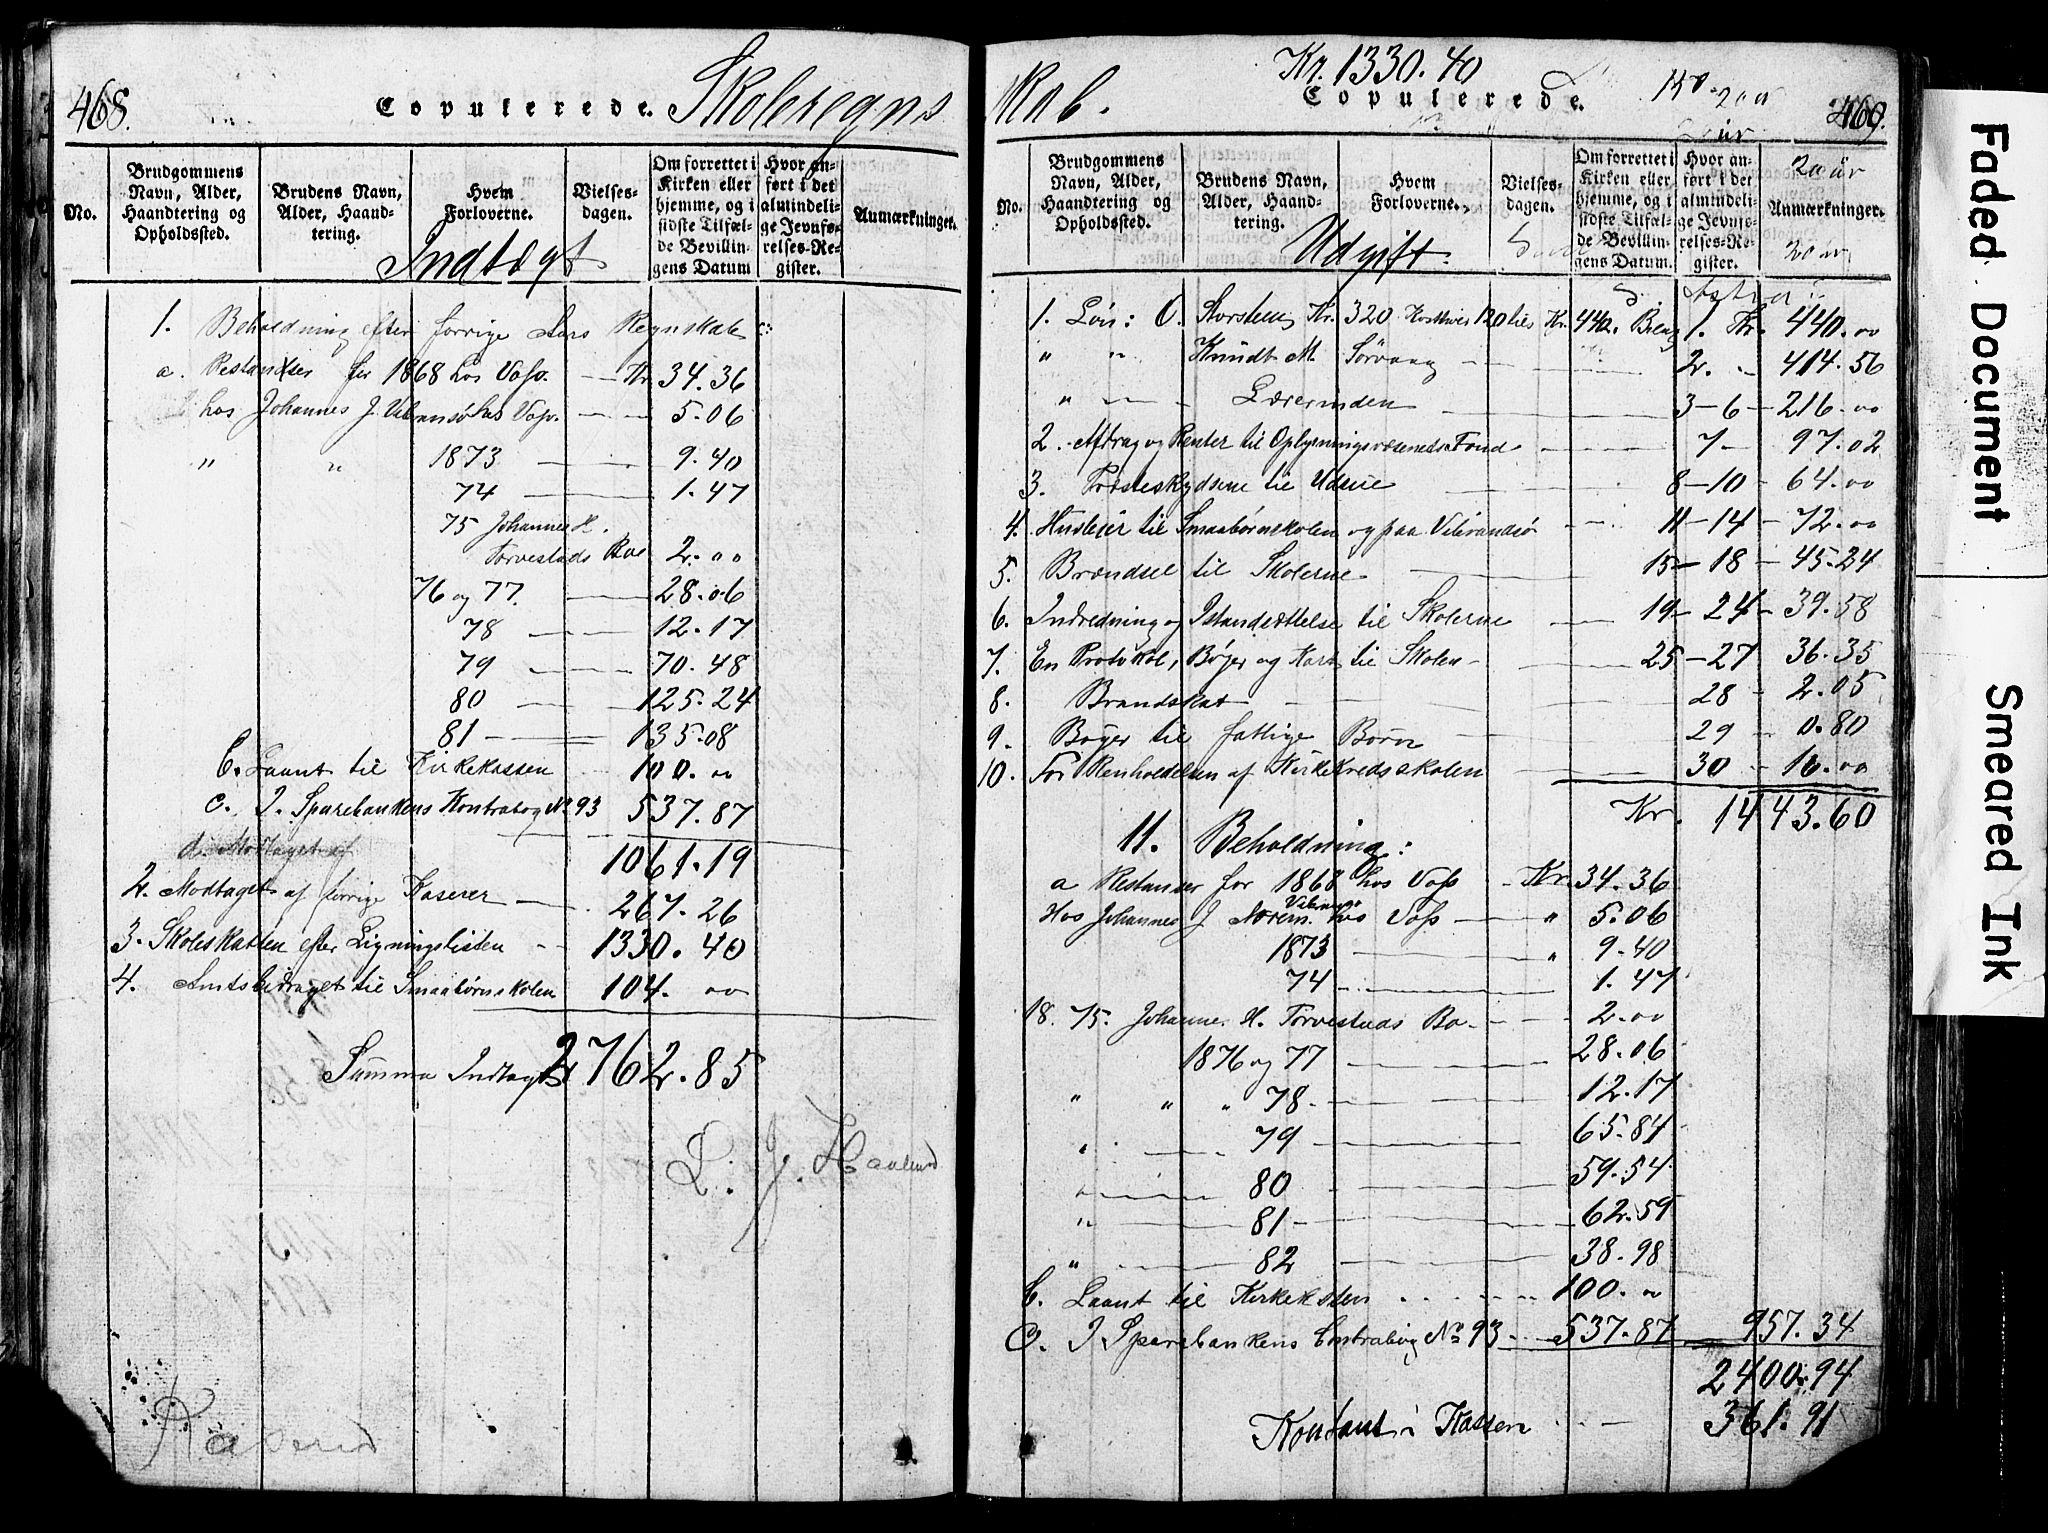 468.
Copulerede. Skoleregns
No.
Brudgommens Navn, Alder, Haandtering og Opholdssted.
Brudens Navn, Alder, Haandtering.
Hvem Forloverne.
Vielses-dagen.
Om forrettet i Kirken eller hjemme, og i sidste Tilfælde Bevillingens Datum
Hvor anført i det almindelige Jevnførelses-Register.
Anmærkninger.
Indtægt
1. Beholdning efter forrige Aars Regnskab:
a. Restantser for 1868 hos Voss. — Kr. 34.36
hos Johannes J. Vibransø hos Voss. — 5.06
" " 1873 — 9.40
74 — 1.47
75 Johannes H.
Torvestads Bo 2.00
76 og 77. — 28.06
78 — 12.17
79 — 70.48
80 — 125.24
81 — 135.08
b. Laant til Kirkekassen 100.00
c. I Sparebankens Kontrabog No 93 537.87
d. Modtaget af 1061.19
2. Modtaget af forrige Kaserer — 267.26
3. Skoleskatten efter Ligningslisten — 1330.40
4. Amtsbidraget til Smaabørnskolen 104.00
Summa Indtægt 2762.85
L. J. Haaland
Kaserer
Kr. 1330.40
kab. Copulerede. 469.
20 ür
No.
Brudgommens Navn, Alder, Haandtering og Opholdssted.
Brudens Navn, Alder, Haandtering.
Hvem Forloverne.
Vielses-dagen.
Om forrettet i Kirken eller hjemme, og i sidste Tilfælde Bevillingens Datum.
Hvor anført i det almindelige Jevnførelses-Register.
Anmærkninger.
Udgift.
1. Løn: O. Storstein Kr. 320 Kosthvei 120 tils Kr. 440. Bilag 1. Kr. 440.00
" " Knudt M. Sørvaag — 2. - 414.56
" — Lærerinden — 3-6 - 216.00
2. Afdrag og Renter til Oplysningsvæsenets Fond — 7 - 97.02
3. Præsteskydsene til Udsire — 8-10 - 64.00
4. Husleier til Smaabørnskolen og paa Vibrandsø — 11-14 - 72.00
5. Brændsel til Skolerne — 15-18 - 45.24
6. Indredning og Istandsættelse til Skolerne — 19-24 - 39.58
7. En Protokol, Bøger og Kart til Skolen — 25-27 36.35
8. Brandskat — 28 - 2.05
9. Bøger til fattige Børn — 29 - 0.80
10. For Renholdelsen af Kirkekredsskolen — 30 - 16.00
Kr. 1443.60
11. Beholdning:
a Restanser for 1868 hos Voss - Kr. 34.36
Hos Johannes J Vibransø hos Voss — " 5.06
1873 — " 9.40
74 — 1.47
18.75. Johannes H. Torvestads Bo — 2.00
1876 og 77 — 28.06
" " " 78 — 12.17
" — 79 — 65.84
" — 80 — 59.54
" — 81 — 62.59
" — 82 — 38.98
b. Laant til Kirkeksten 100.00
c. I Sparebankens Contrabog No 93 — 537.87 — 957.34
2400.94
Kontant i Kassen — 361.91
Faded Document
Smeared Ink